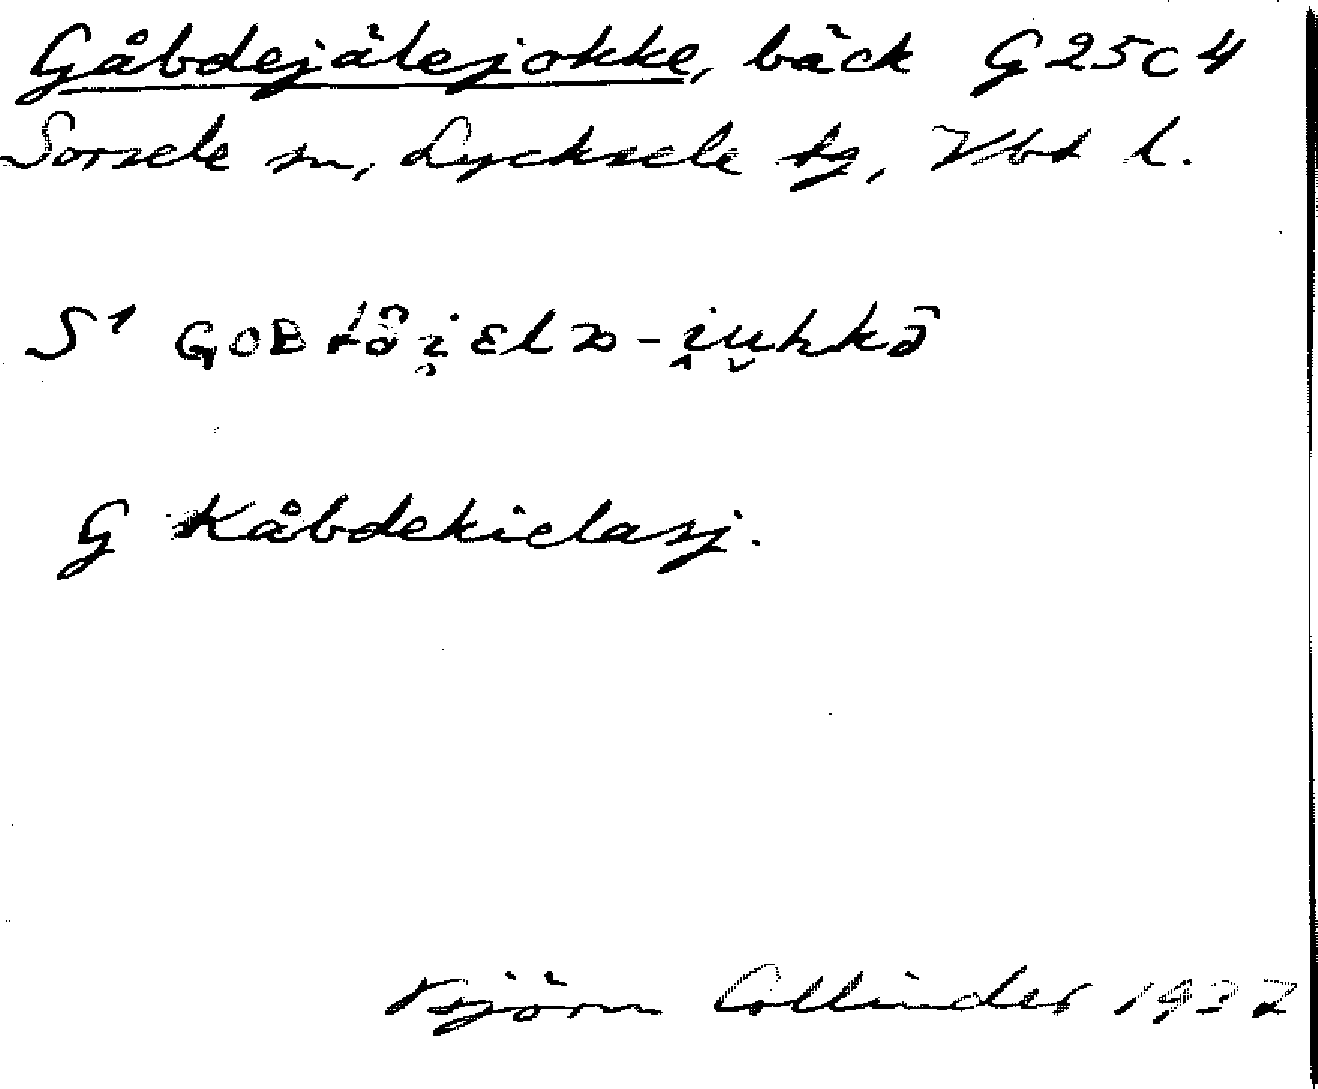 Gåbdejälejokke, bäck G25c4
Sorsele sn, Lycksele tg, Vbt l.
S¹
G Kåbdekielasj.
Björn Collinder 1937